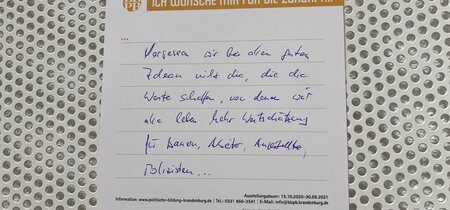 ICH WÜNSCHE MIR FÜR DIE ZUKUNFT...
Vergessen wir bei den guten
Ideen nicht die, die die
Werte schaffen, von denen wir
alle leben. Mehr Wertschätzung
für Bauern, Arbeiter, Angestellte,
Polizisten...
Ausstellungsdauer: 15.10.2020-30.06.2021
Information: www.politische-bildung-brandenburg.de | Tel.: 0331 866-3541 | E-Mail: info@blpb.brandenburg.de